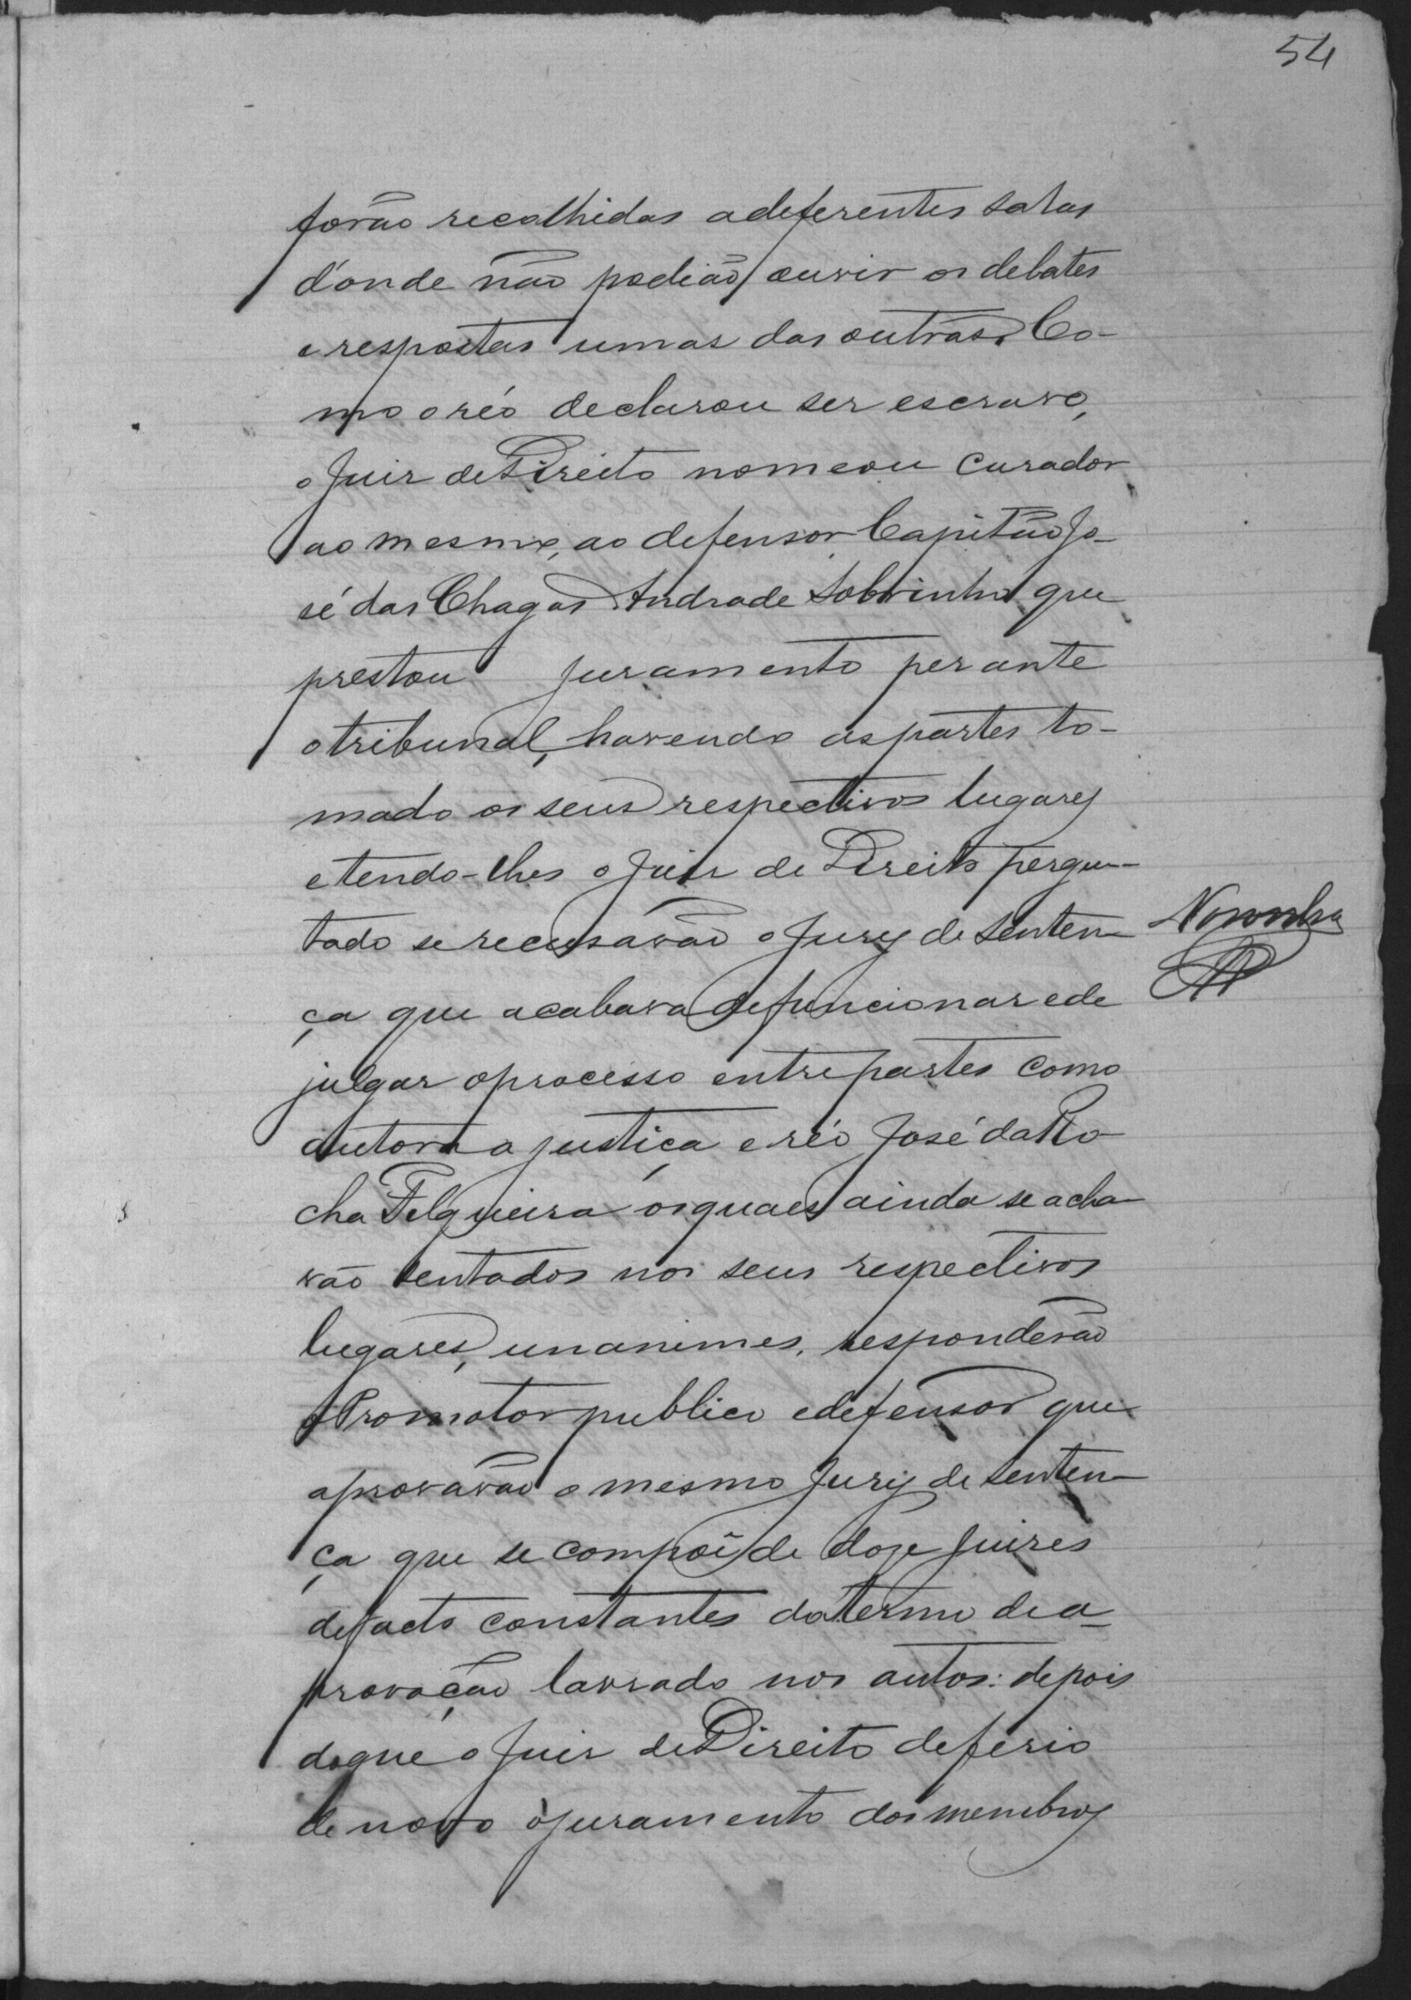 54
forão recolhidas a deferentes salas
d'onde não podião ouvir os debates
e respostas umas das outras. Co-
mo o réo declarou ser escravo,
o Juiz de Direito nomeou curador
ao mesmo, ao defensor Capitão Jo-
sé das Chagas Andrade Sobrinho que
prestou juramento perante
o tribunal, havendo as partes to-
mado os seus respectivos lugares
e tendo-lhes o Juiz de Direito pergun-
tado se recusavão o Jury de senten-
Noronha
ça que acabava de funcionar e de
julgar o processo entre partes como
autora a justiça e réo José da Ro-
cha Felgueira os quaes ainda se acha-
vão sentados nos seus respectivos
lugares, unanimes, responderão
o Promotor publico e defensor que
aprovavão o mesmo Jury de senten-
ça que se compõi de doze Juizes
de facto constantes do termo de a-
provação lavrado nos autos: depois
do que o Juiz de Direito deferio
de novo o juramento dos membros